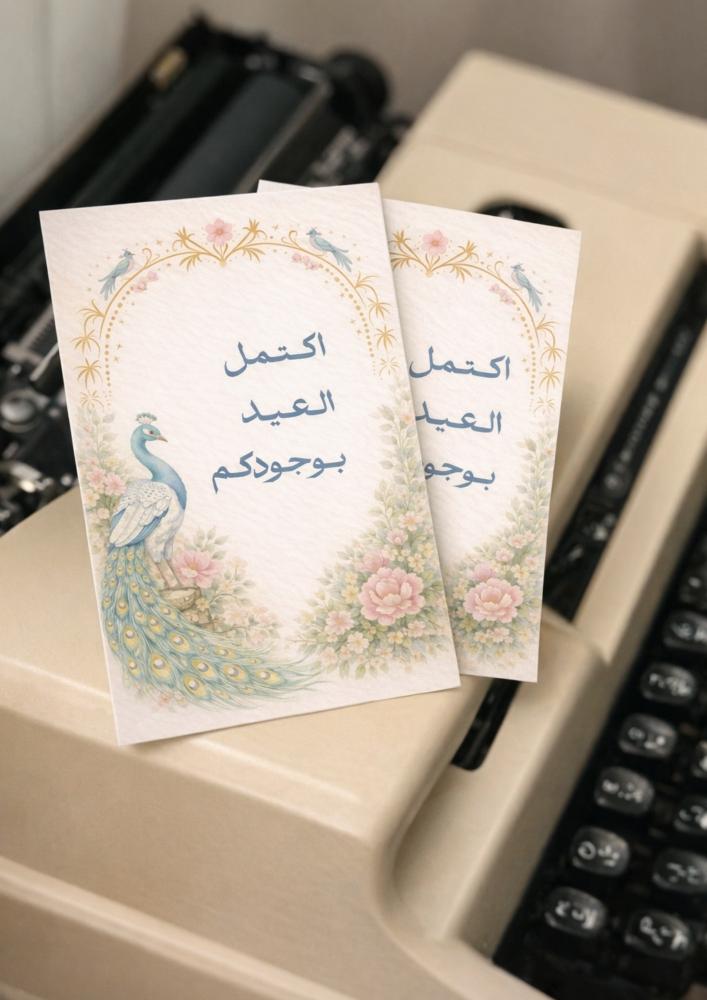 اكتمل
العيد
بوجودكم
اكتمل
العيد
بوجو